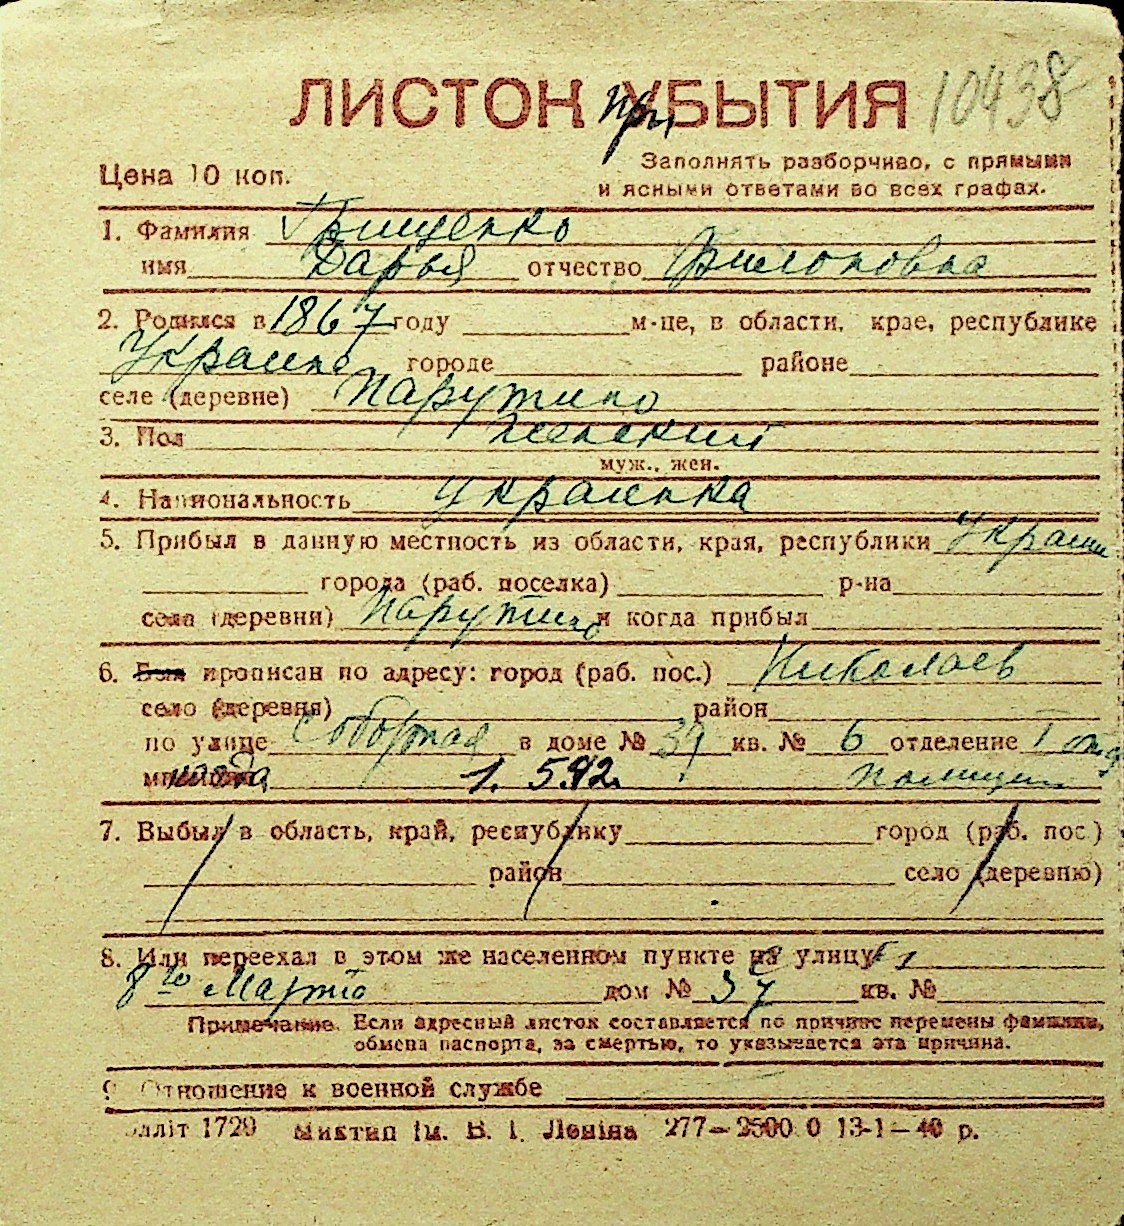 ЛИСТОК УБЫТИЯ 10438
При
Цена 10 коп. Заполнять разборчиво, с прямыми
и ясными ответами во всех графах.
1. Фамилия Грищенко
имя Дарья отчество Филоновна
2. Родился в 1867 году м-це, в области, крае, республике
Украине городе районе
селе (деревне) Парутино
3. Пол женский
муж., жен.
4. Национальность украинка
5. Прибыл в данную местность из области, края, республики Украин
города (раб. поселка) р-на
села (деревни) Парутино и когда прибыл
6. Был прописан по адресу: город (раб. пос.) Николаев
село (деревня) район
по улице Соборная в доме № 39 кв. № 6 отделение
1. 5.42. полиции
7. Выбыл в область, край, республику город (раб. пос.)
район село (деревню)
8. Или переехал в этом же населенном пункте на улицу
8го Марта дом № 37 кв. №
Примечание. Если адресный листок составляется по причине перемены фамилии,
обмена паспорта, за смертью, то указывается эта причина.
9. Отношение к военной службе
1729 ім. В. І. Леніна 277— 2500 0 13-1—40 р.